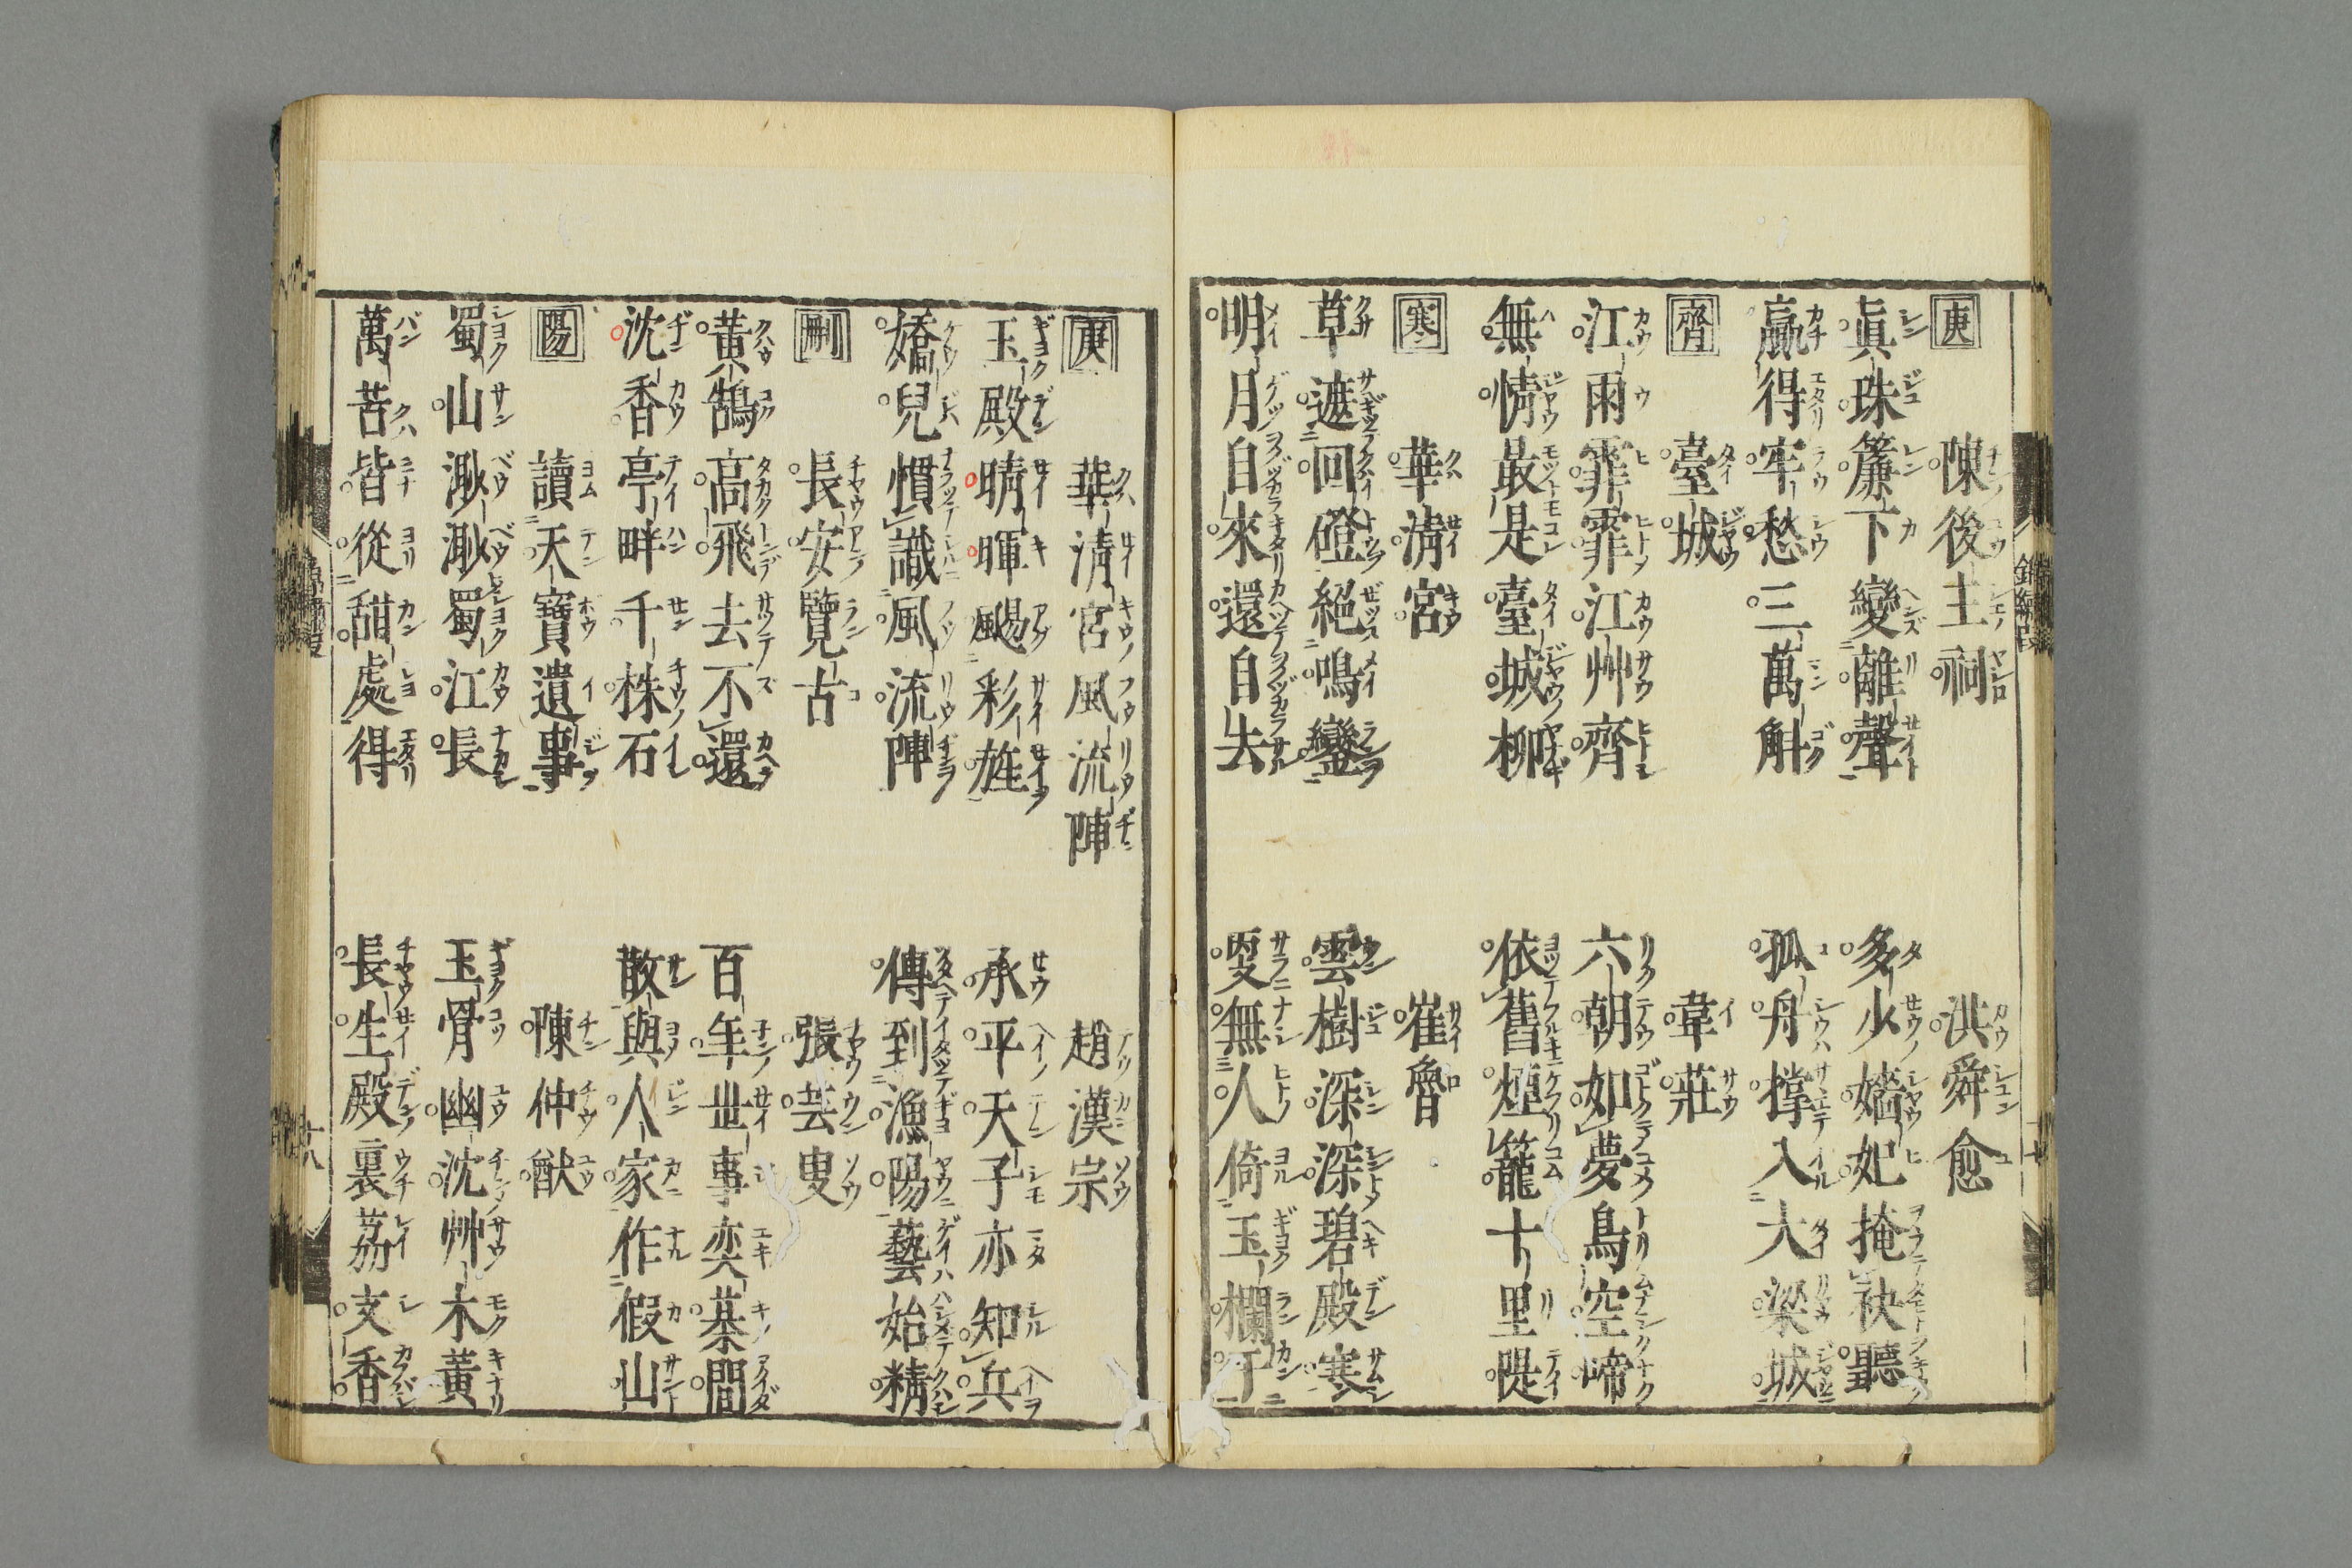 庚 陳後主祠 洪舜愈
眞珠簾下變離聲 多少嬙妃掩袂聽
贏得牢愁三萬斛 孤舟撑入大梁城
齊 臺城 韋莊
江雨霏霏江艸齊 六朝如夢鳥空啼
無情最是臺城柳 依舊煙籠十里隄
寒 華淸宮 崔魯
草遮回磴絕鳴鑾 雲樹深深碧殿寒
明月自來還自去 叓無人倚玉欄干
錦繡段 十七
庚 華淸宮風流陣 趙漢宗
玉殿晴暉颺彩旌 承平天子亦知兵
嬌兒慣識風流陣 傳到漁陽藝始精
刪 長安覽古 張芸叟
黃鵠高飛去不還 百年世事奕棊間
沈香亭畔千株石 散與人家作假山
陽 讀天寶遺事 陳仲猷
蜀山渺渺蜀江長 玉骨幽沈艸木黃
萬苦皆從甜處得 長生殿裏茘支香
十八